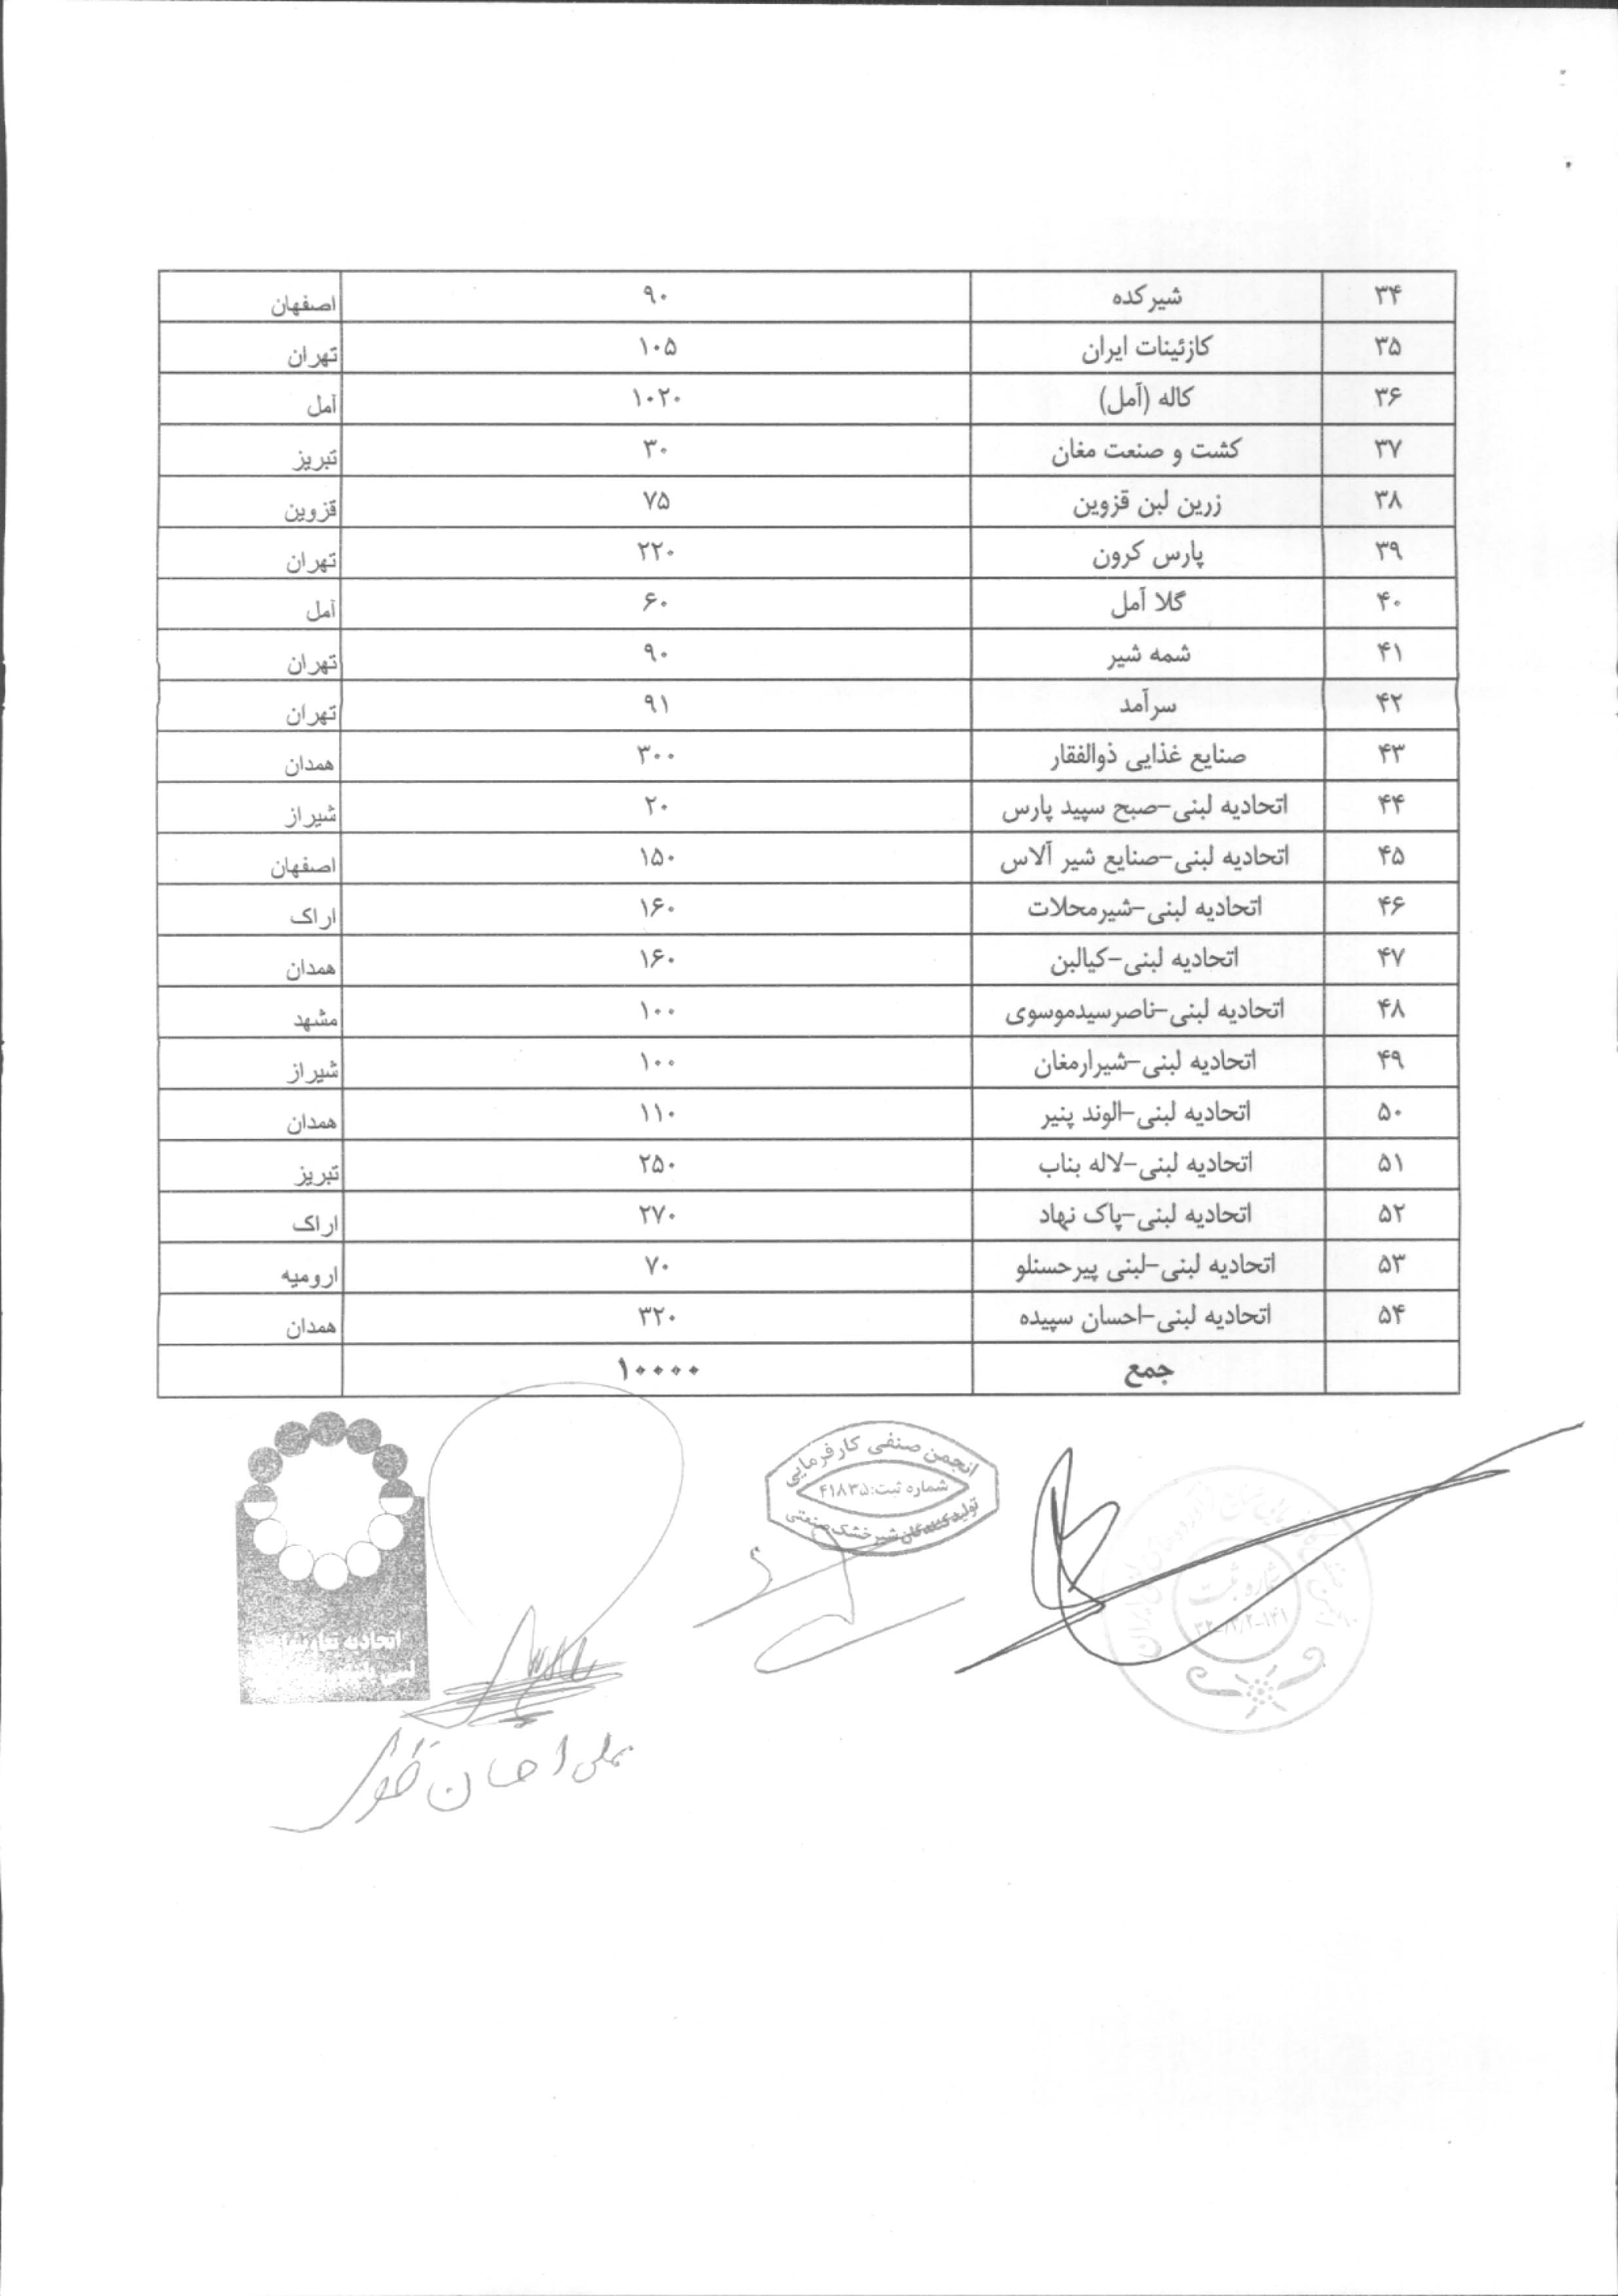 ۳۴ شیرکده ۹۰ اصفهان
۳۵ کازئینات ایران ۱۰۵ تهران
۳۶ کاله (آمل) ۱۰۲۰ آمل
۳۷ کشت و صنعت مغان ۳۰ تبریز
۳۸ زرین لبن قزوین ۷۵ قزوین
۳۹ پارس کرون ۲۲۰ تهران
۴۰ گلا آمل ۶۰ آمل
۴۱ شمه شیر ۹۰ تهران
۴۲ سرآمد ۹۱ تهران
۴۳ صنایع غذایی ذوالفقار ۳۰۰ همدان
۴۴ اتحادیه لبنی-صبح سپید پارس ۲۰ شیراز
۴۵ اتحادیه لبنی-صنایع شیر آلاس ۱۵۰ اصفهان
۴۶ اتحادیه لبنی-شیرمحلات ۱۶۰ اراک
۴۷ اتحادیه لبنی-کیالبن ۱۶۰ همدان
۴۸ اتحادیه لبنی-ناصرسیدموسوی ۱۰۰ مشهد
۴۹ اتحادیه لبنی-شیرارمغان ۱۰۰ شیراز
۵۰ اتحادیه لبنی-الوند پنیر ۱۱۰ همدان
۵۱ اتحادیه لبنی-لاله بناب ۲۵۰ تبریز
۵۲ اتحادیه لبنی-پاک نهاد ۲۷۰ اراک
۵۳ اتحادیه لبنی-لبنی پیرحسنلو ۷۰ ارومیه
۵۴ اتحادیه لبنی-احسان سپیده ۳۲۰ همدان
جمع ۱۰۰۰۰
انجمن صنفی کارفرمایی
شماره ثبت:۴۱۸۳۵
تولیدکنندگان شیرخشک صنعتی
شماره ثبت
اتحادیه
علی احسان